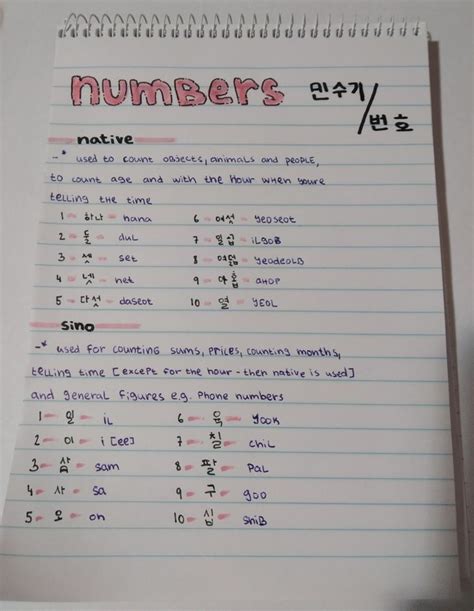 numBers 민수기/
번호
native
-* used to count objects, animals and people,
to count age and with the hour when youre
telling the time
1 - 하나 - hana 6 - 여섯 - yeoseot
2 - 둘 - dul 7 - 일곱 - ilgoB
3 - 셋 - set 8 - 여덟 - yeodeolB
4 - 넷 - net 9 - 아홉 - ahop
5 - 다섯 - daseot 10 - 열 - yeol
sino
-* used for counting sums, prices, counting months,
telling time [except for the hour - then native is used]
and general figures e.g. phone numbers
1 - 일 - il 6 - 육 - yook
2 - 이 - i [ee] 7 - 칠 - chil
3 - 삼 - sam 8 - 팔 - pal
4 - 사 - sa 9 - 구 - goo
5 - 오 - oh 10 - 십 - shiB